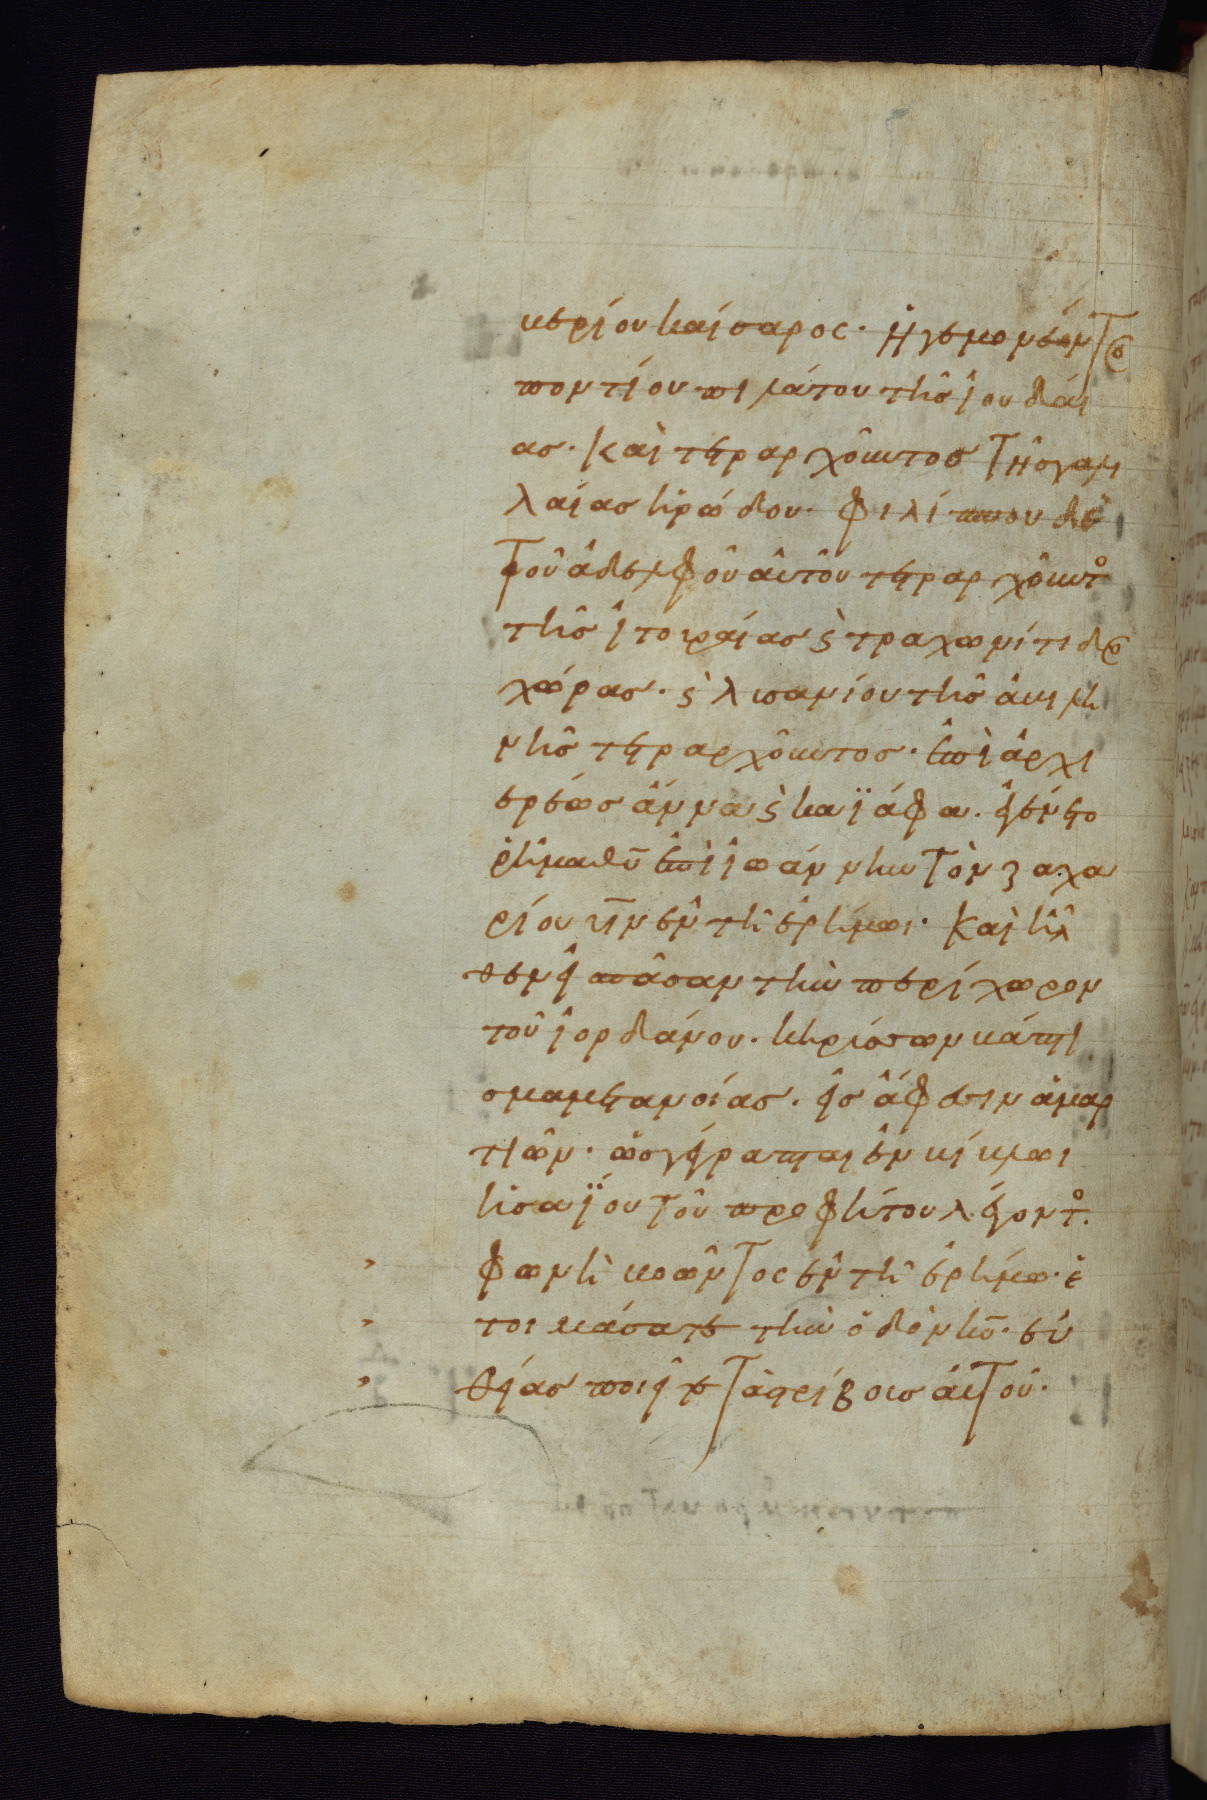 βερίου καίσαρος· ἡγεμονεύοντος
ποντίου πιλάτου τῆς ἰουδαί
ας· καὶ τετραρχοῦντος τῆς γαλι
λαίας ἡρώδου· φιλίππου δὲ
τοῦ ἀδελφοῦ αὐτοῦ τετραρχοῦντο
τῆς ἰτουραίας ϛ τραχωνίτιδος
χώρας· ϛ λυσανίου τῆς ἀβιλη
νῆς τετραρχοῦντος· ἐπὶ ἀρχι
ερέως ἄννα ϛ καϊάφα· ἐγένετο
ῥῆμα θ̅υ̅ ἐπὶ ἰωάννην τὸν ζαχα
ρίου υ̅ν̅ ἐν τῆ ἐρήμωι· καὶ ἦλ
θεν εἰς πᾶσαν τὴν περίχωρον
τοῦ ἰορδάνου· κηρύσσων βάπτι
σμα μετανοίας· εἰς ἄφεσιν ἁμαρ
τιῶν· ὡς γέγραπται ἐν βίβλωι
ἡσαΐου τοῦ προφήτου λέγοντο·
φωνὴ βοῶντος ἐν τῆ ἐρήμω· ἑ
τοιμάσατε τὴν ὁδὸν κ̅υ̅· εὐ
θείας ποιεῖτε τὰς τρίβους αὐτοῦ·